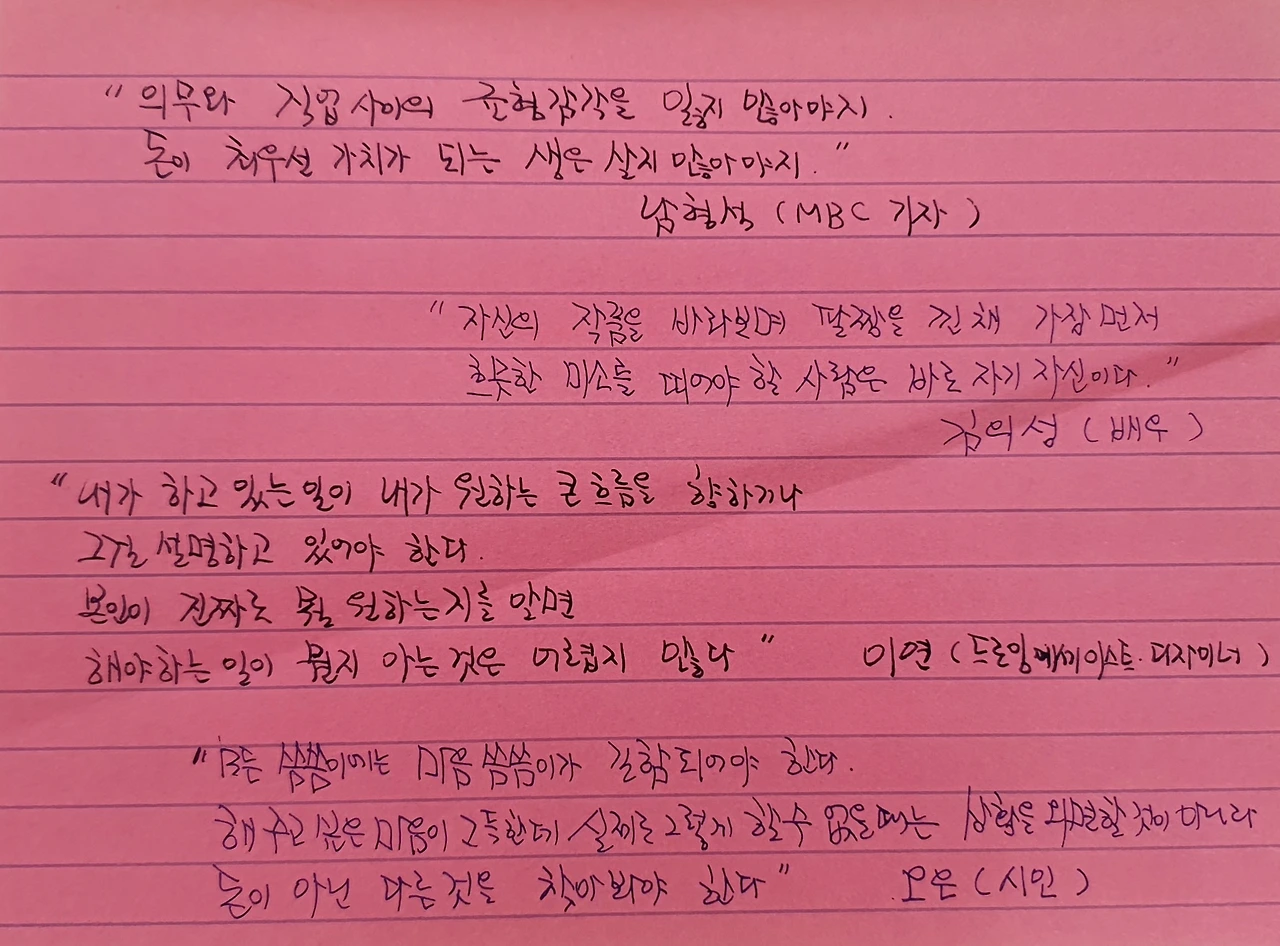 "의무와 직업 사이의 균형감각을 잃지 않아야지.
돈이 최우선 가치가 되는 생은 살지 않아야지."
남형석 (MBC 기자)
"자신의 작품을 바라보며 팔짱을 낀 채 가장 먼저
흐뭇한 미소를 띠어야 할 사람은 바로 자기 자신이다."
김의성 (배우)
"내가 하고 있는 일이 내가 원하는 큰 흐름을 향하거나
그걸 설명하고 있어야 한다.
본인이 진짜로 뭘 원하는지를 알면
해야하는 일이 뭔지 아는 것은 어렵지 않다" 이연 (드로잉에세이스트. 디자이너)
"모든 씀씀이에는 마음 씀씀이가 결합되어야 한다.
해 주고 싶은 마음이 그득한데 실제로 그렇게 할 수 없을 때는 상황을 외면할 것이 아니라
돈이 아닌 다른 것을 찾아봐야 한다" 오은 (시인)